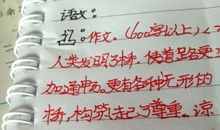 语文:
书:作文。(600字以上)<
人类发明了桥,使道路更
加通畅。更有各种无形的
桥,构筑(起)了尊重。谅